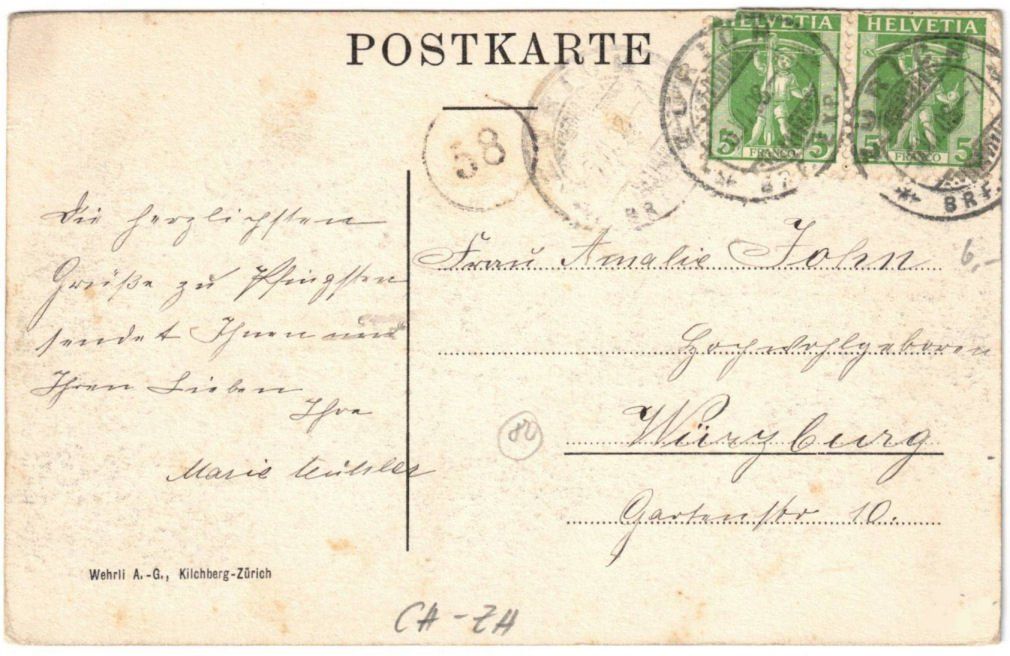 POSTKARTE
HELVETIA
HELVETIA
5 FRANCO 5
5 FRANCO 5
ZÜRICH
BRF.
58
Die herzlichsten
Grüße zu Pfingsten
sendet Ihnen und
Ihren Lieben
Ihre
Marie
Frau Amalie John
Hochwohlgeboren
Würzburg
Gartenstr 10.
6,-
80
Wehrli A.-G., Kilchberg-Zürich
CH-ZH